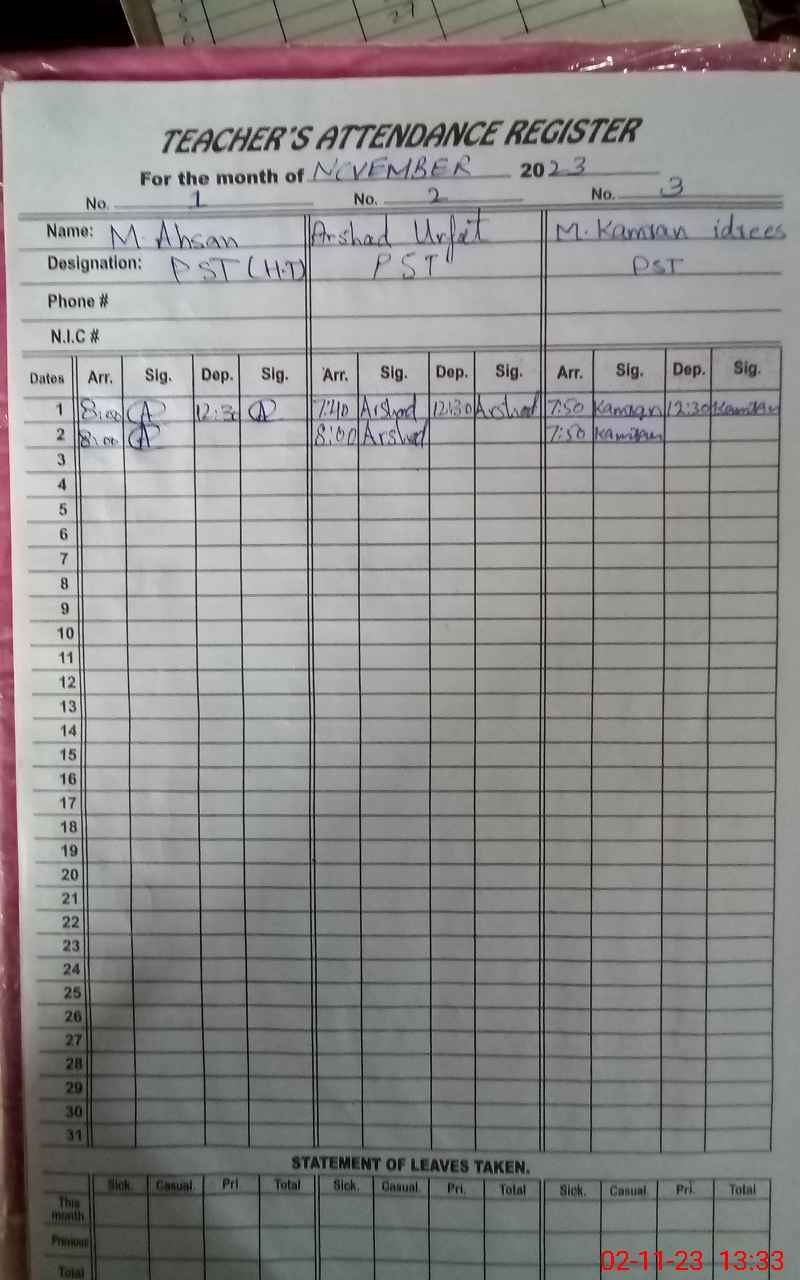 5
6
27
TEACHER'S ATTENDANCE REGISTER
For the month of NOVEMBER 2023
No. 1 No. 2 No. 3
Name: M. Ahsan Arshad Urfat M. Kamran idrees
Designation: PST (H.T) PST PST
Phone #
N.I.C #
Dates Arr. Sig. Dep. Sig. Arr. Sig. Dep. Sig. Arr. Sig. Dep. Sig.
1 8:00 A 12:30 A 7:40 Arshad 12:30 Arshad 7:50 Kamran 12:30 Kamran
2 8:00 A 8:00 Arshad 7:50 Kamran
3
4
5
6
7
8
9
10
11
12
13
14
15
16
17
18
19
20
21
22
23
24
25
26
27
28
29
30
31
STATEMENT OF LEAVES TAKEN.
Sick. Casual. Pri. Total Sick. Casual. Pri. Total Sick. Casual. Pri. Total
This month
Previous
Total
02-11-23 13:33